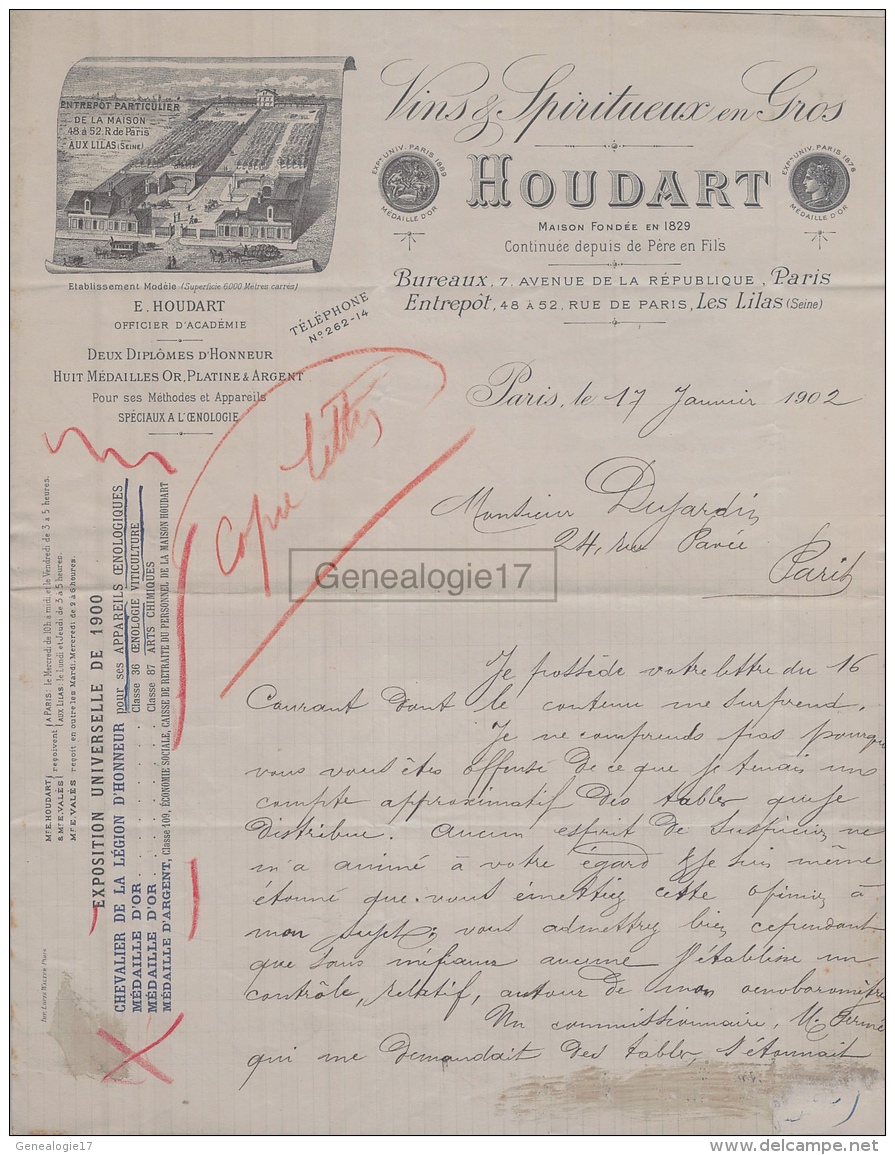 ENTREPÔT PARTICULIER
DE LA MAISON
48 à 52, R. de Paris
AUX LILAS (SEINE)
Etablissement Modèle (Superficie 6000 Mètres carrés)
E. HOUDART
OFFICIER D'ACADÉMIE
DEUX DIPLÔMES D'HONNEUR
HUIT MÉDAILLES OR, PLATINE & ARGENT
Pour ses Méthodes et Appareils
SPÉCIAUX A L'ŒNOLOGIE
TÉLÉPHONE
No 262-14
Vins & Spiritueux en Gros
EXPon UNIV. PARIS 1889
MÉDAILLE D'OR
HOUDART
EXPon UNIV. PARIS 1878
MÉDAILLE D'OR
MAISON FONDÉE EN 1829
Continuée depuis de Père en Fils
Bureaux, 7, AVENUE DE LA RÉPUBLIQUE, Paris
Entrepôt, 48 À 52, RUE DE PARIS, Les Lilas (Seine)
Paris, le 17 Janvier 1902
Copie
Monsieur Dujardin
24, rue Pavée
Paris
Genealogie17
Je possède votre lettre du 16
Courant dont le contenu me surprend.
Je ne comprends pas pourquoi
vous vous êtes offensé de ce que je tenais un
compte approximatif des tables que je
distribue. Aucun esprit de suspicion ne
m'a animé à votre égard & je suis même
étonné que vous émettiez cette opinion à
mon sujet; vous admettrez bien cependant
que sans méfiance aucune j'établisse un
contrôle, relatif, autour de mon oenobaromètre
Un commissionnaire, M.
qui me demandait des tables, s'étonnait
Mr E. HOUDART reçoivent A PARIS: le Mercredi de 10h à midi, et le Vendredi de 3 à 5 heures.
& Mr E. VALÈS AUX LILAS: le Lundi et Jeudi de 3 à 5 heures.
Mr E. VALÈS reçoit en outre les Mardi, Mercredi de 2 à 6 heures.
EXPOSITION UNIVERSELLE DE 1900
CHEVALIER DE LA LÉGION D'HONNEUR pour ses APPAREILS ŒNOLOGIQUES
MÉDAILLE D'OR . . . . . . . Classe 36 ŒNOLOGIE VITICULTURE
MÉDAILLE D'OR . . . . . . . Classe 87 ARTS CHIMIQUES
MÉDAILLE D'ARGENT, Classe 109, ÉCONOMIE SOCIALE, CAISSE DE RETRAITE DU PERSONNEL DE LA MAISON HOUDART
Genealogie17
delcampe.net